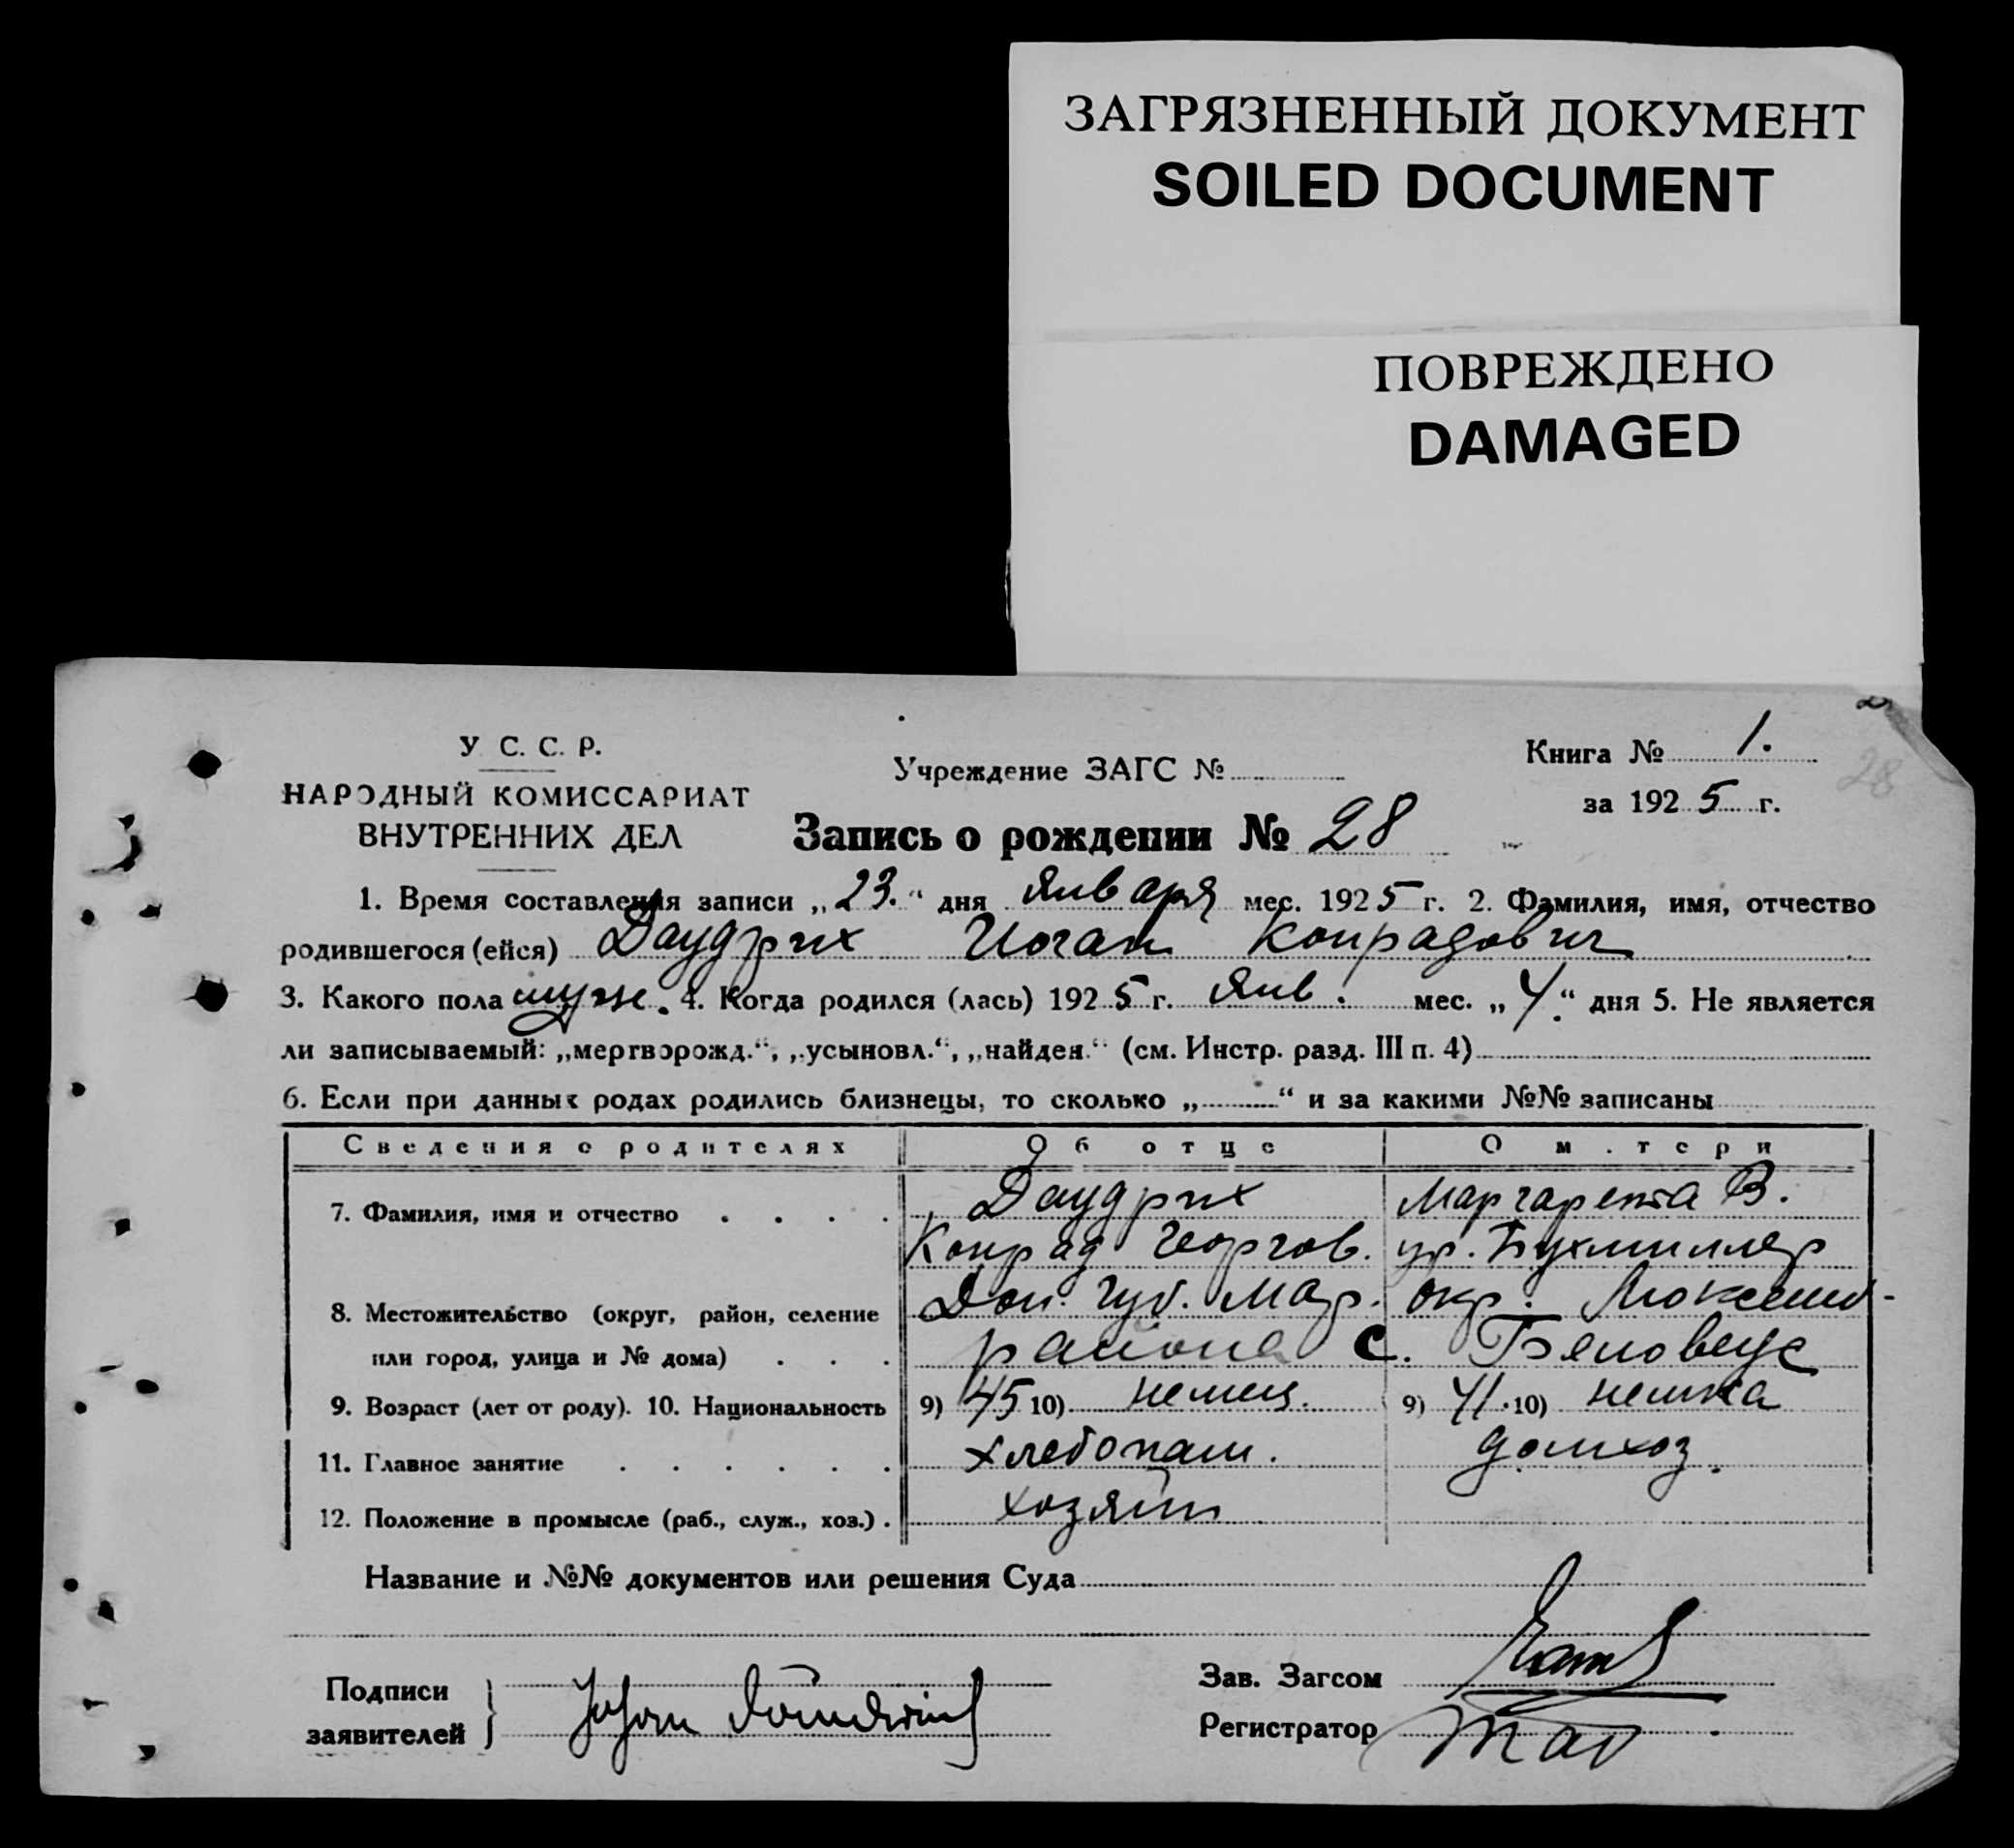 ЗАГРЯЗНЕННЫЙ ДОКУМЕНТ
SOILED DOCUMENT
ПОВРЕЖДЕНО
DAMAGED
У С. С. Р.
НАРОДНЫЙ КОМИССАРИАТ
ВНУТРЕННИХ ДЕЛ
Учреждение ЗАГС №
Книга № 1.
28
за 1925 г.
Запись о рождении № 28
1. Время составления записи „23.“ дня Января мес. 1925 г. 2. Фамилия, имя, отчество
родившегося (ейся) Даудрих Иоган Конрадович
3. Какого пола муж. 4. Когда родился (лась) 1925 г. Янв. мес. „4.“ дня 5. Не является
ли записываемый: „мертворожд.“, „усыновл.“, „найден.“ (см. Инстр. разд. III п. 4)
6. Если при данных родах родились близнецы, то сколько „ “ и за какими №№ записаны
Сведения о родителях Об отце О м.тери
7. Фамилия, имя и отчество . . . . Даудрих Маргарета В.
Конрад Георгов. ур. Бухмиллер
8. Местожительство (округ, район, селение Дон. Губ. Мар. окр. Люксемб-
или город, улица и № дома) . . . района с. Беловеус
9. Возраст (лет от роду). 10. Национальность 9) 45 10) немец. 9) 41. 10) немка
11. Главное занятие . . . . . . хлебопаш. домхоз.
12. Положение в промысле (раб., служ., хоз.) . хозяин
Название и №№ документов или решения Суда
Подписи
заявителей } Johan
Зав. Загсом
Регистратор